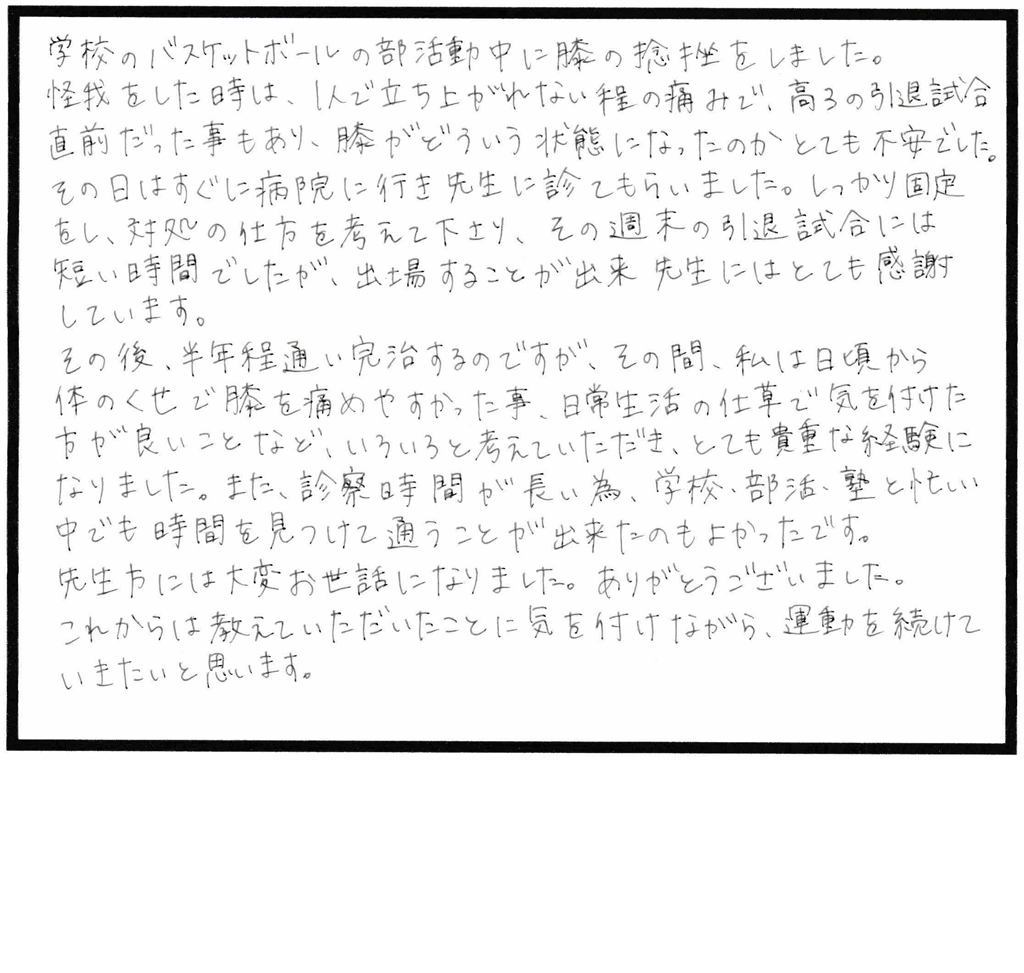 学校のバスケットボールの部活動中に膝の捻挫をしました。
怪我をした時は、1人で立ち上がれない程の痛みで、高3の引退試合
直前だった事もあり、膝がどういう状態になったのかとても不安でした。
その日はすぐに病院に行き先生に診てもらいました。しっかり固定
をし、対処の仕方を考えて下さり、その週末の引退試合には
短い時間でしたが、出場することが出来 先生にはとても感謝
しています。
その後、半年程通い完治するのですが、その間、私は日頃から
体のくせで膝を痛めやすかった事、日常生活の仕草で気を付けた
方が良いことなど、いろいろと考えていただき、とても貴重な経験に
なりました。また、診察時間が長い為、学校、部活、塾と忙しい
中でも時間を見つけて通うことが出来たのもよかったです。
先生方には大変お世話になりました。ありがとうございました。
これからは教えていただいたことに気を付けながら、運動を続けて
いきたいと思います。